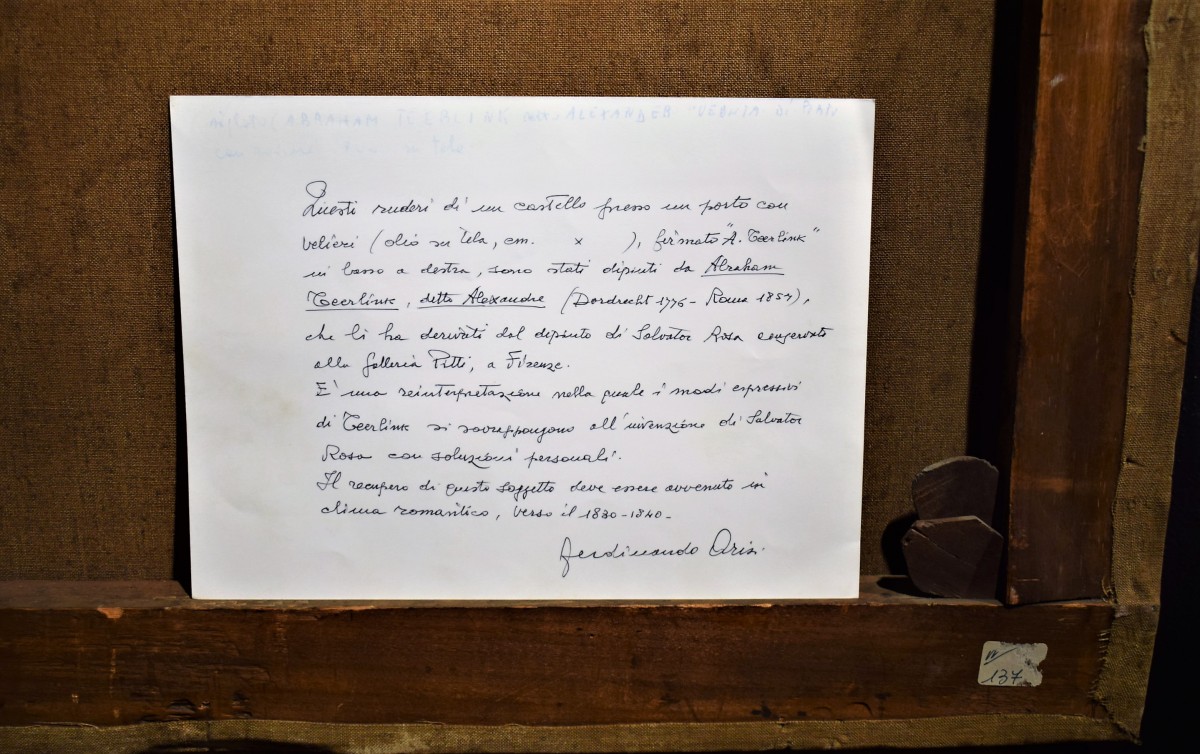 ABRAHAM TEERLINK ALEXANDER VEDUTA DI
tela
Questi ruderi di un castello presso un porto con
velieri (olio su tela, cm. x ), firmato "A. Teerlink"
in basso a destra, sono stati dipinti da Abraham
Teerlink, detto Alexandre (Dordrecht 1776 - Roma 1857),
che li ha derivati dal dipinto di Salvator Rosa conservato
alla Galleria Pitti, a Firenze.
E' una reinterpretazione nella quale i modi espressivi
di Teerlink si sovrappongono all'invenzione di Salvator
Rosa con soluzioni personali.
Il recupero di questo soggetto deve essere avvenuto in
clima romantico, verso il 1830-1840-
Ferdinando Arisi.
IV/
137